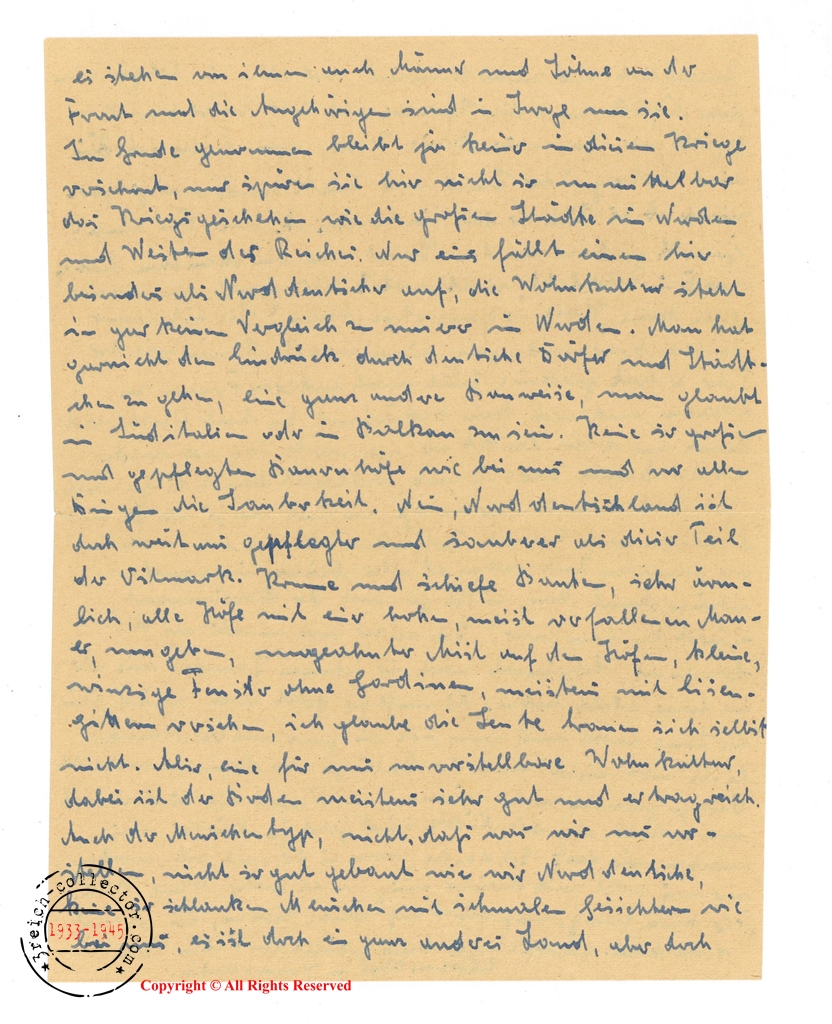 es stehen von ihnen auch Männer und Söhne an der
Front und die Angehörigen sind in Sorge um sie.
Im Grunde genommen bleibt ja keiner in diesem Kriege
verschont, nur spüren sie hier nicht so unmittelbar
das Kriegsgeschehen wie die großen Städte im Norden
und Westen des Reiches. Nur eins fällt einem hier
besonders als Norddeutscher auf, die Wohnkultur steht
in gar keinem Vergleich zu unserer im Norden. Man hat
garnicht den Eindruck durch deutsche Dörfer und Städt-
chen zu gehen, eine ganz andere Bauweise, man glaubt
in Süditalien oder im Balkan zu sein. Keine so großen
und gepflegten Bauernhöfe wie bei uns und vor allen
Dingen die Sauberkeit. Nein, Norddeutschland ist
doch weitaus gepflegter und sauberer als dieser Teil
der Ostmark. Krumme und schiefe Bauten, sehr ärm-
lich, alle Höfe mit einer hohen, meist verfallenen Mau-
er, umgeben, ungeahnter Mist auf den Höfen, kleine,
winzige Fenster ohne Gardinen, meistens mit Eisen-
gittern versehen, ich glaube die Leute trauen sich selbst
nicht. Also, eine für uns unvorstellbare Wohnkultur,
dabei ist der Boden meistens sehr gut und ertragreich.
Auch der Menschentyp, nicht, daß was wir uns vor-
stellen, nicht so gut gebaut wie wir Norddeutsche,
keine so schlanken Menschen mit schmalen Gesichtern wie
bei uns, es ist doch ein ganz anderes Land, aber doch
3reich-collector.com
1933-1945
Copyright © All Rights Reserved